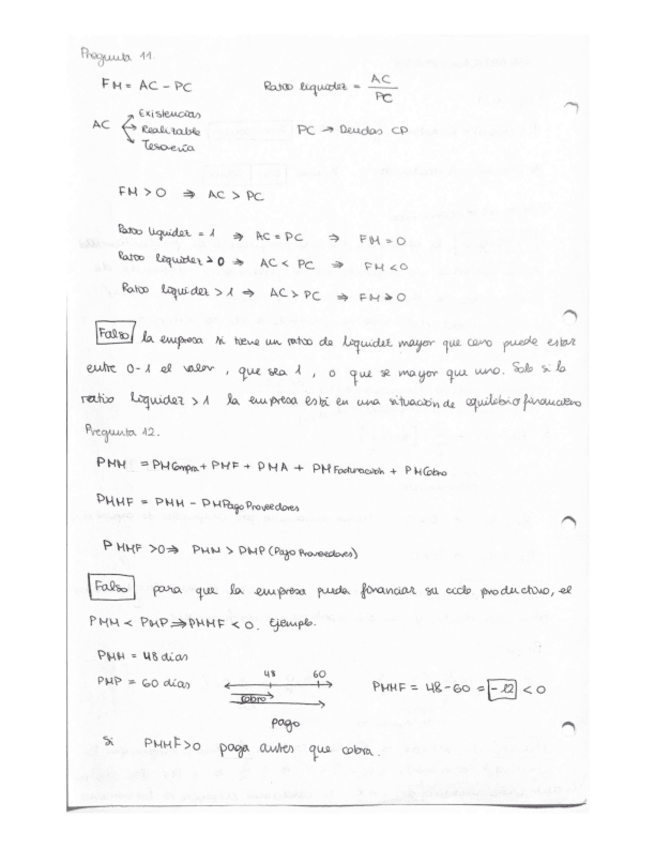 Pregunta 11.
FM = AC - PC Ratio liquidez = AC / PC
AC → Existencias
→ Realizable
→ Tesorería
PC → Deudas CP
FM > 0 ⇒ AC > PC
Ratio liquidez = 1 ⇒ AC = PC ⇒ FM = 0
Ratio liquidez > 0 ⇒ AC < PC ⇒ FM < 0
Ratio liquidez > 1 ⇒ AC > PC ⇒ FM > 0
Falso la empresa si tiene un ratio de liquidez mayor que cero puede estar
entre 0-1 el valor, que sea 1, o que se mayor que uno. Solo si la
ratio liquidez > 1 la empresa está en una situación de equilibrio financiero
Pregunta 12.
PMM = PMCompra + PMF + PMA + PMFacturación + PMCobro
PMMF = PMM - PMPago Proveedores
PMMF > 0 ⇒ PMM > PMP (Pago Proveedores)
Falso para que la empresa pueda financiar su ciclo productivo, el
PMM < PMP ⇒ PMMF < 0. Ejemplo.
PMM = 48 días
PMP = 60 días
48 60
cobro
pago
PMMF = 48-60 = -12 < 0
Si PMMF > 0 paga antes que cobra.